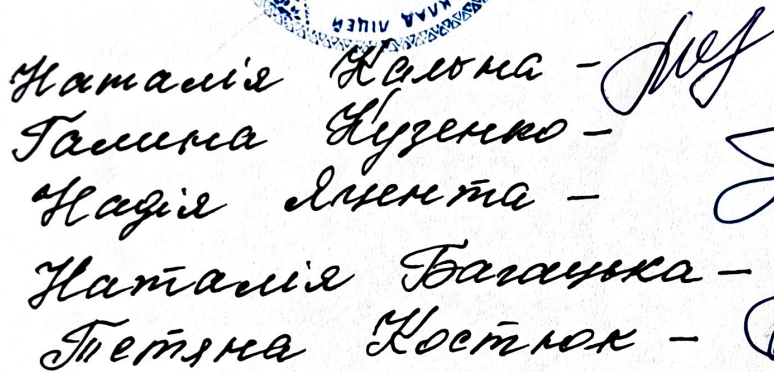 КЛАД ЛІЦЕЙ
Наталія Кальна -
Галина Кузенко -
Надія Яцента -
Наталія Багацька -
Тетяна Костюк -